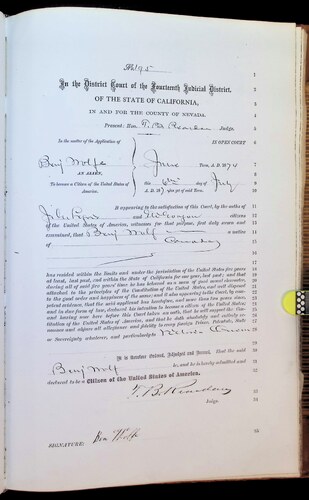 In the District Court of the Fourteenth Judicial District,
OF THE STATE OF CALIFORNIA,
IN AND FOR THE COUNTY OF NEVADA.
Present: Hon. T. B. Reardan Judge.
In the matter of the Application of
IN OPEN COURT
Benj Wolfe
June Term, A. D. 1874
AN ALIEN,
To become a Citizen of the United States of America.
this 6th day of July
A. D. 1874 also year of said Term.
It appearing to the satisfaction of this Court, by the oaths of
and citizens
of the United States of America, witnesses for that purpose, first duly sworn and
examined, that Benj Wolf a native
of
has resided within the limits and under the jurisdiction of the United States five years
at least, last past, and within the State of California for one year, last past; and that
during all of said five years' time he has behaved as a man of good moral character,
attached to the principles of the Constitution of the United States, and well disposed
to the good order and happiness of the same; and it also appearing to the Court, by competent
evidence, that the said applicant has heretofore, and more than two years since,
and in due form of law, declared his intention to become a citizen of the United States;
and having now here before this Court taken an oath, that he will support the Constitution
of the United States of America, and that he doth absolutely and entirely renounce
and abjure all allegiance and fidelity to every foreign Prince, Potentate, State
or Sovereignty, whatever, and particularly to
It is therefore Ordered, Adjudged and Decreed, That the said
Benj Wolf be, and is hereby admitted and
declared to be a Citizen of the United States of America.
T. B. Reardan
Judge.
SIGNATURE: Ben Wolfe